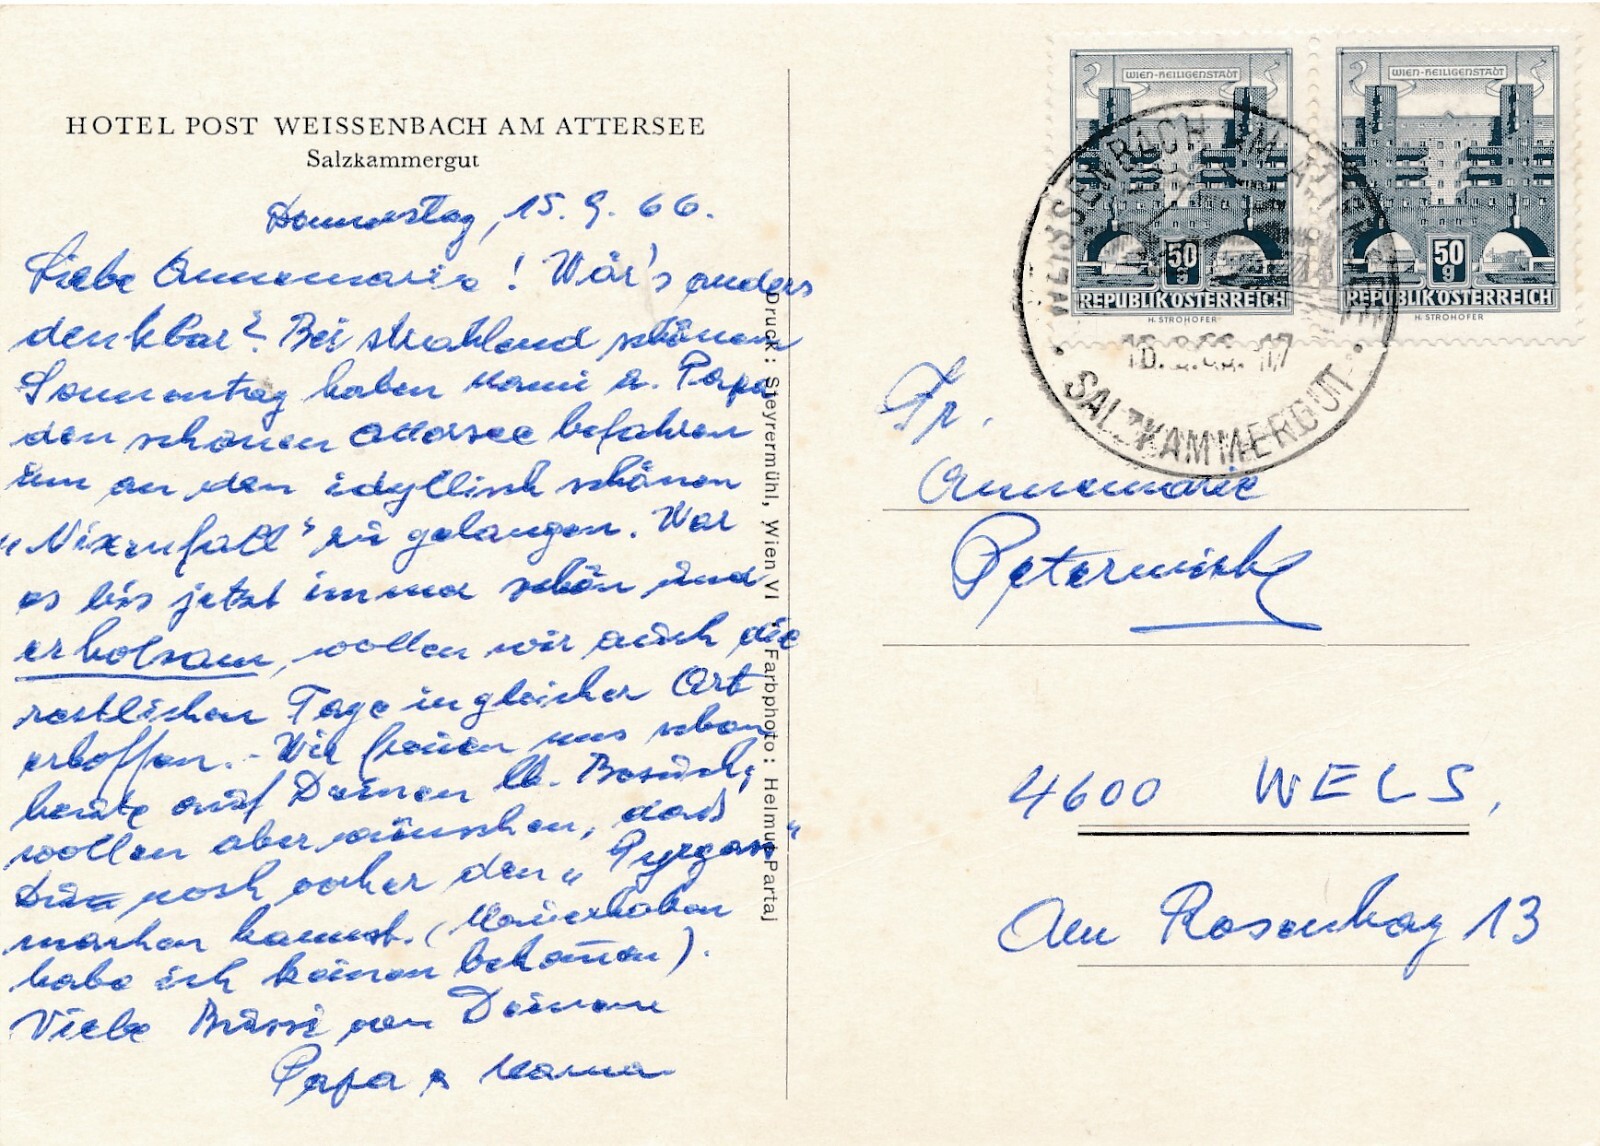 HOTEL POST WEISSENBACH AM ATTERSEE
Salzkammergut
Donnerstag, 15. 9. 66.
Liebe Annemarie! Wär's anders
denkbar? Bei strahlend schönen
Sonnentag haben Mami u. Papa
den schönen Attersee befahren
um an den idyllisch schönen
„Nixenfall" zu gelangen. War
es bis jetzt immer schön und
erholsam, wollen wir auch die
restlichen Tage in gleicher Art
erhoffen. - Wir freuen uns schon
heute auf Deinen lb. Besuch,
wollen aber wünschen, dass
Du noch vorher den „Pyrgass"
machen kannst. (
habe ich keinen bekommen).
Viele Bussi von Deinem
Papa & Mama
Druck: Steyrermühl, Wien VI
Farbphoto: Helmut Partaj
WIEN-HEILIGENSTADT
50
g
REPUBLIK ÖSTERREICH
H. STROHOFER
WIEN-HEILIGENSTADT
50
g
REPUBLIK ÖSTERREICH
H. STROHOFER
WEISSENBACH AM ATTERSEE
SALZKAMMERGUT
Fr.
Annemarie
4600 WELS,
Am Rosenhag 13